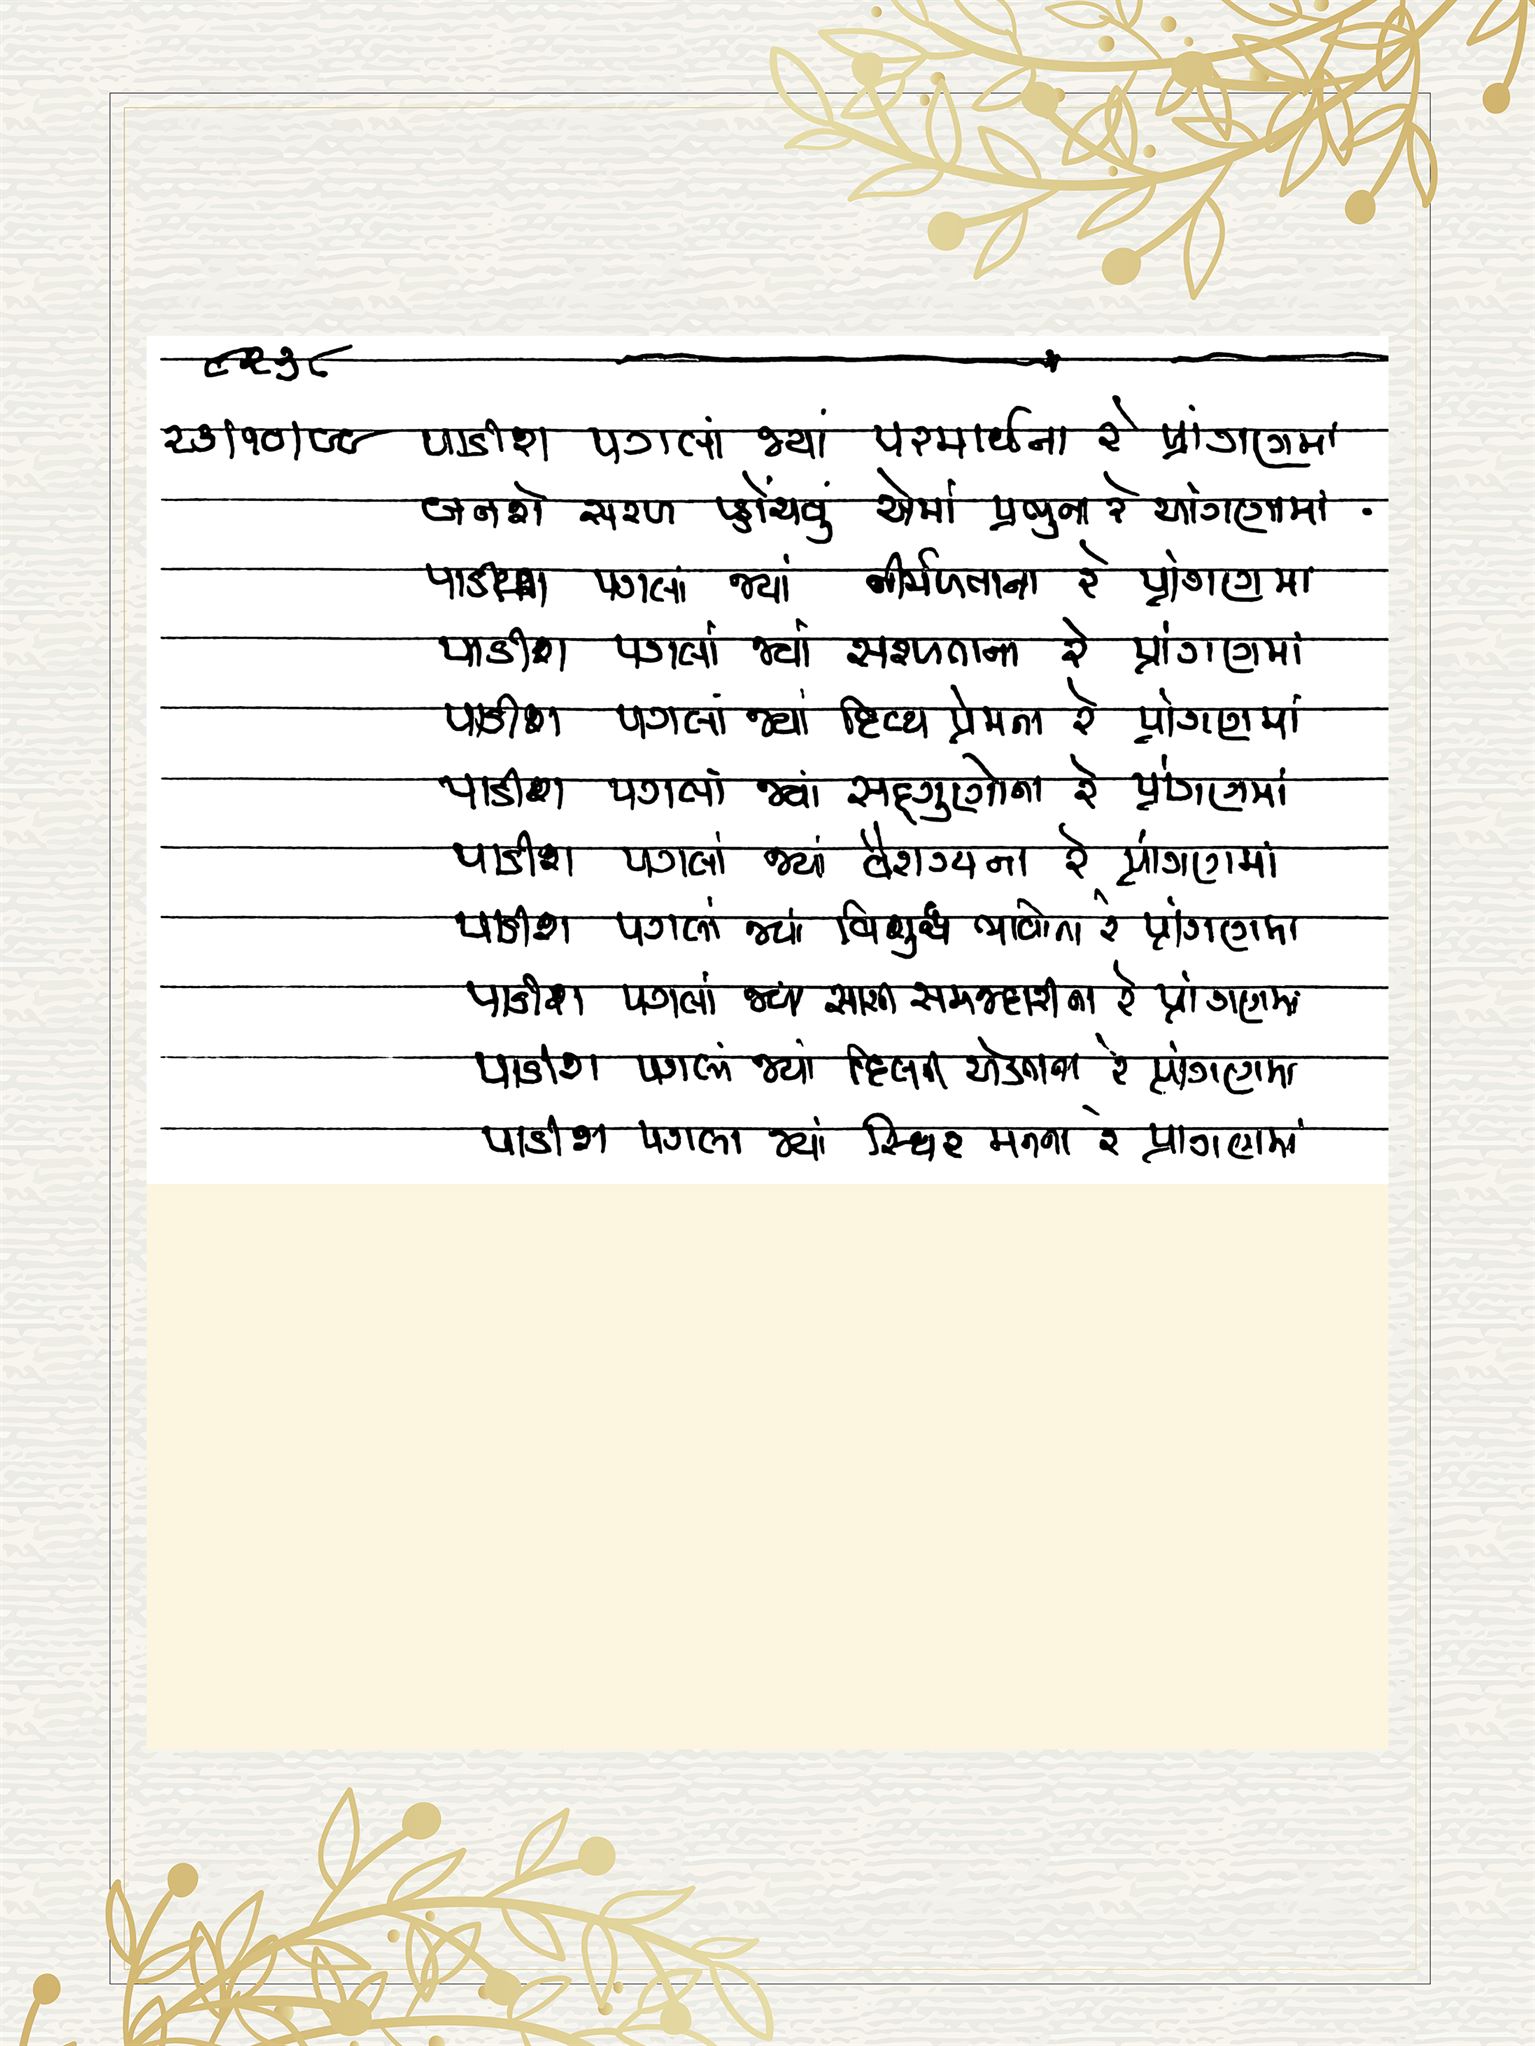 ૮૨૩૮
૨૩/૧૦/૯૯ પાડીશ પગલાં જ્યાં પરમાર્થના રે પ્રાંગણમાં
બનશે સરળ પ્હોંચવું એમાં પ્રભુના રે આંગણામાં .
પાડીશ પગલાં જ્યાં નીર્મળતાના રે પ્રાંગણમાં
પાડીશ પગલાં જ્યાં સરળતાના રે પ્રાંગણમાં
પાડીશ પગલાં જ્યાં દિવ્ય પ્રેમના રે પ્રાંગણમાં
પાડીશ પગલાં જ્યાં સદ્ગુણોના રે પ્રાંગણમાં
પાડીશ પગલાં જ્યાં વૈરાગ્યના રે પ્રાંગણમાં
પાડીશ પગલાં જ્યાં વિશુદ્ધ ભાવોના રે પ્રાંગણમાં
પાડીશ પગલાં જ્યાં સાચી સમજદારીના રે પ્રાંગણમાં
પાડીશ પગલાં જ્યાં દિલની એકતાના રે પ્રાંગણમાં
પાડીશ પગલા જ્યાં સ્થિર મનના રે પ્રાંગણમાં